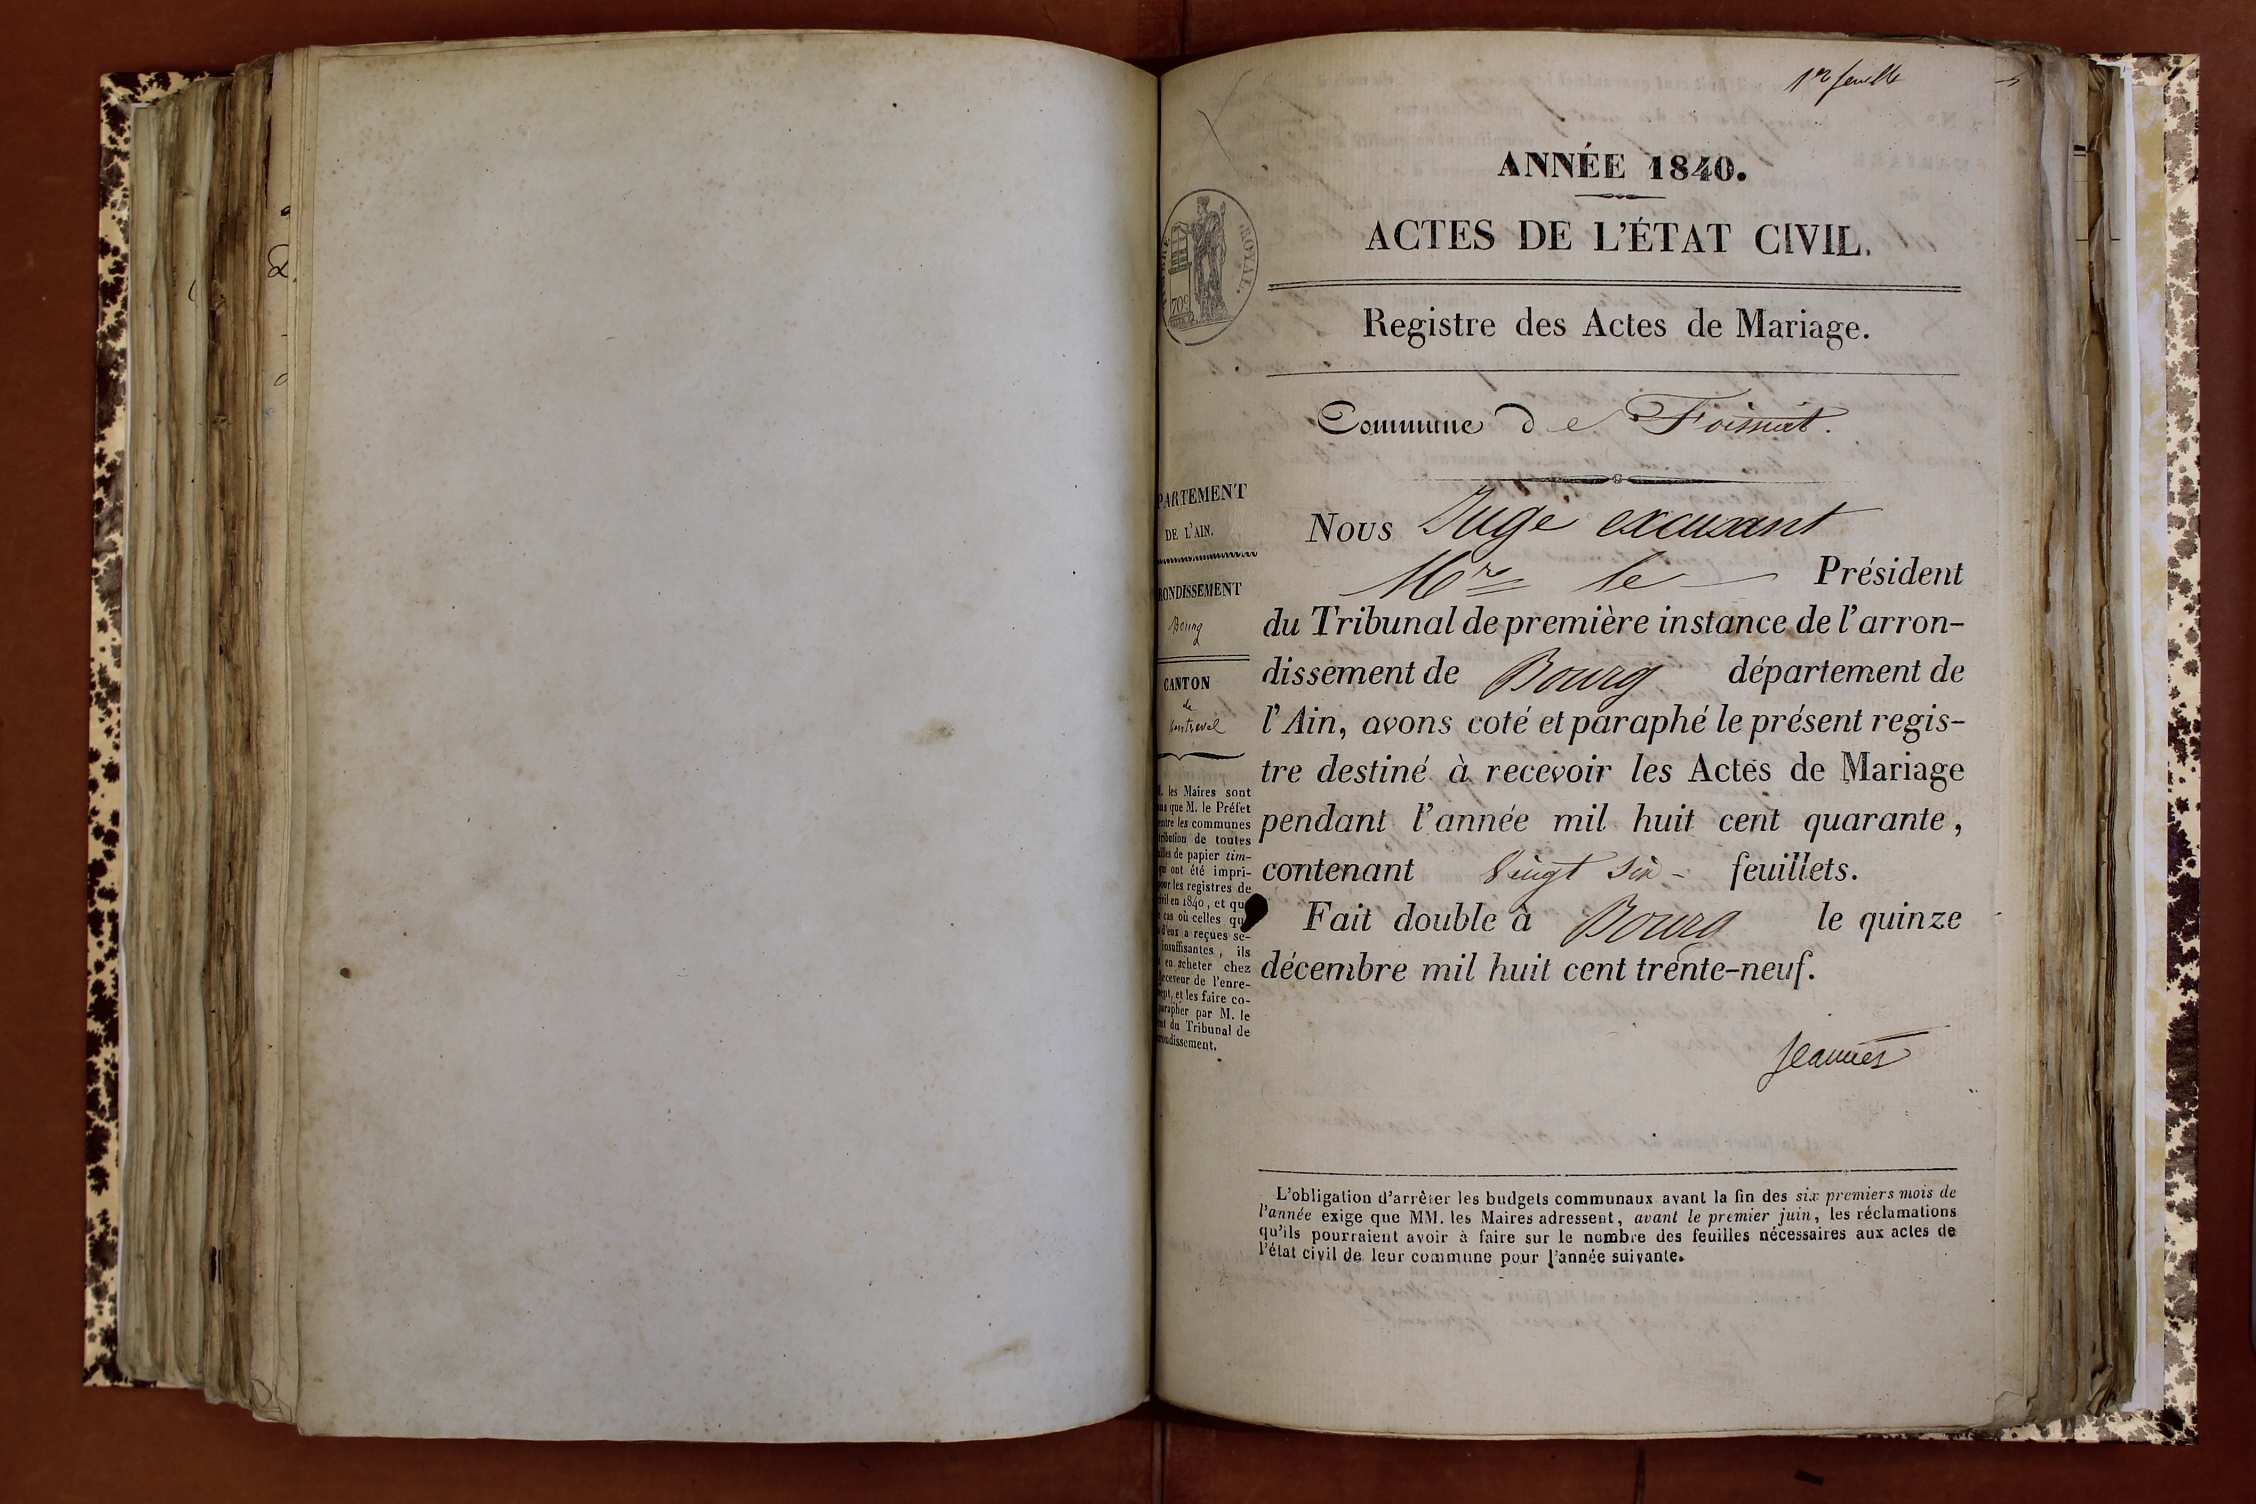 1re feuille
ANNÉE 1840.
ACTES DE L'ÉTAT CIVIL.
ROYAL.
70c
Registre des Actes de Mariage.
Commune de Foissiat.
PARTEMENT
DE L'AIN.
RONDISSEMENT
Bourg
CANTON
de
Montrevel
M. les Maires sont
que M. le Préfet
entre les communes
tribution de toutes
de papier tim-
ont été impri-
pour les registres de
civil en 1840, et qu
cas où celles qu
d'eux a reçues se-
insuffisantes, ils
en acheter chez
Receveur de l'enre-
et les faire co-
parapher par M. le
du Tribunal de
rondissement.
Nous Juge excusant
Mr le Président
du Tribunal de première instance de l'arron-
dissement de Bourg département de
l'Ain, avons coté et paraphé le présent regis-
tre destiné à recevoir les Actes de Mariage
pendant l'année mil huit cent quarante,
contenant Vingt Six - feuillets.
Fait double à Bourg le quinze
décembre mil huit cent trente-neuf.
L'obligation d'arrêter les budgets communaux avant la fin des six premiers mois de
l'année exige que MM. les Maires adressent, avant le premier juin, les réclamations
qu'ils pourraient avoir à faire sur le nombre des feuilles nécessaires aux actes de
l'état civil de leur commune pour l'année suivante.